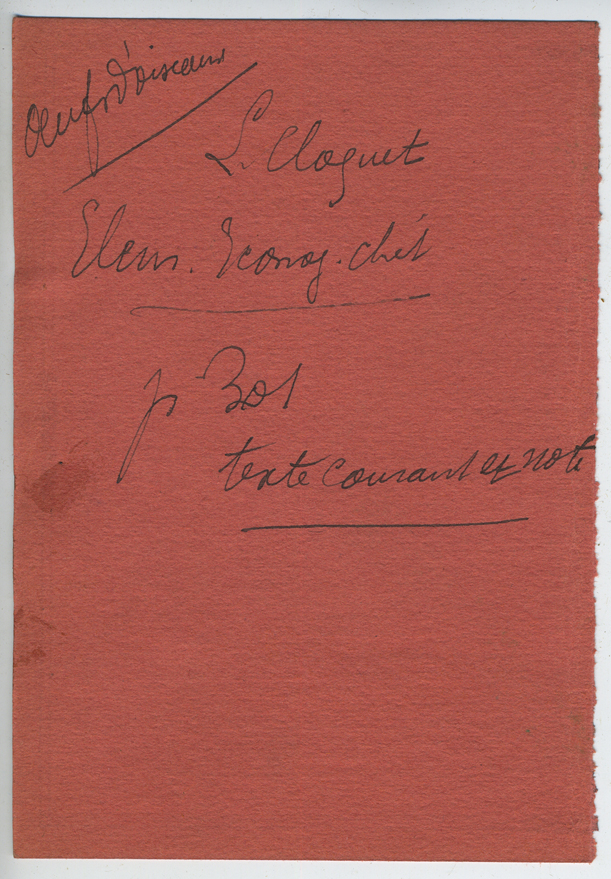 Oeufs d'oiseaux
L. Cloquet
Elem. Iconog. chét
p 301
texte courant et note